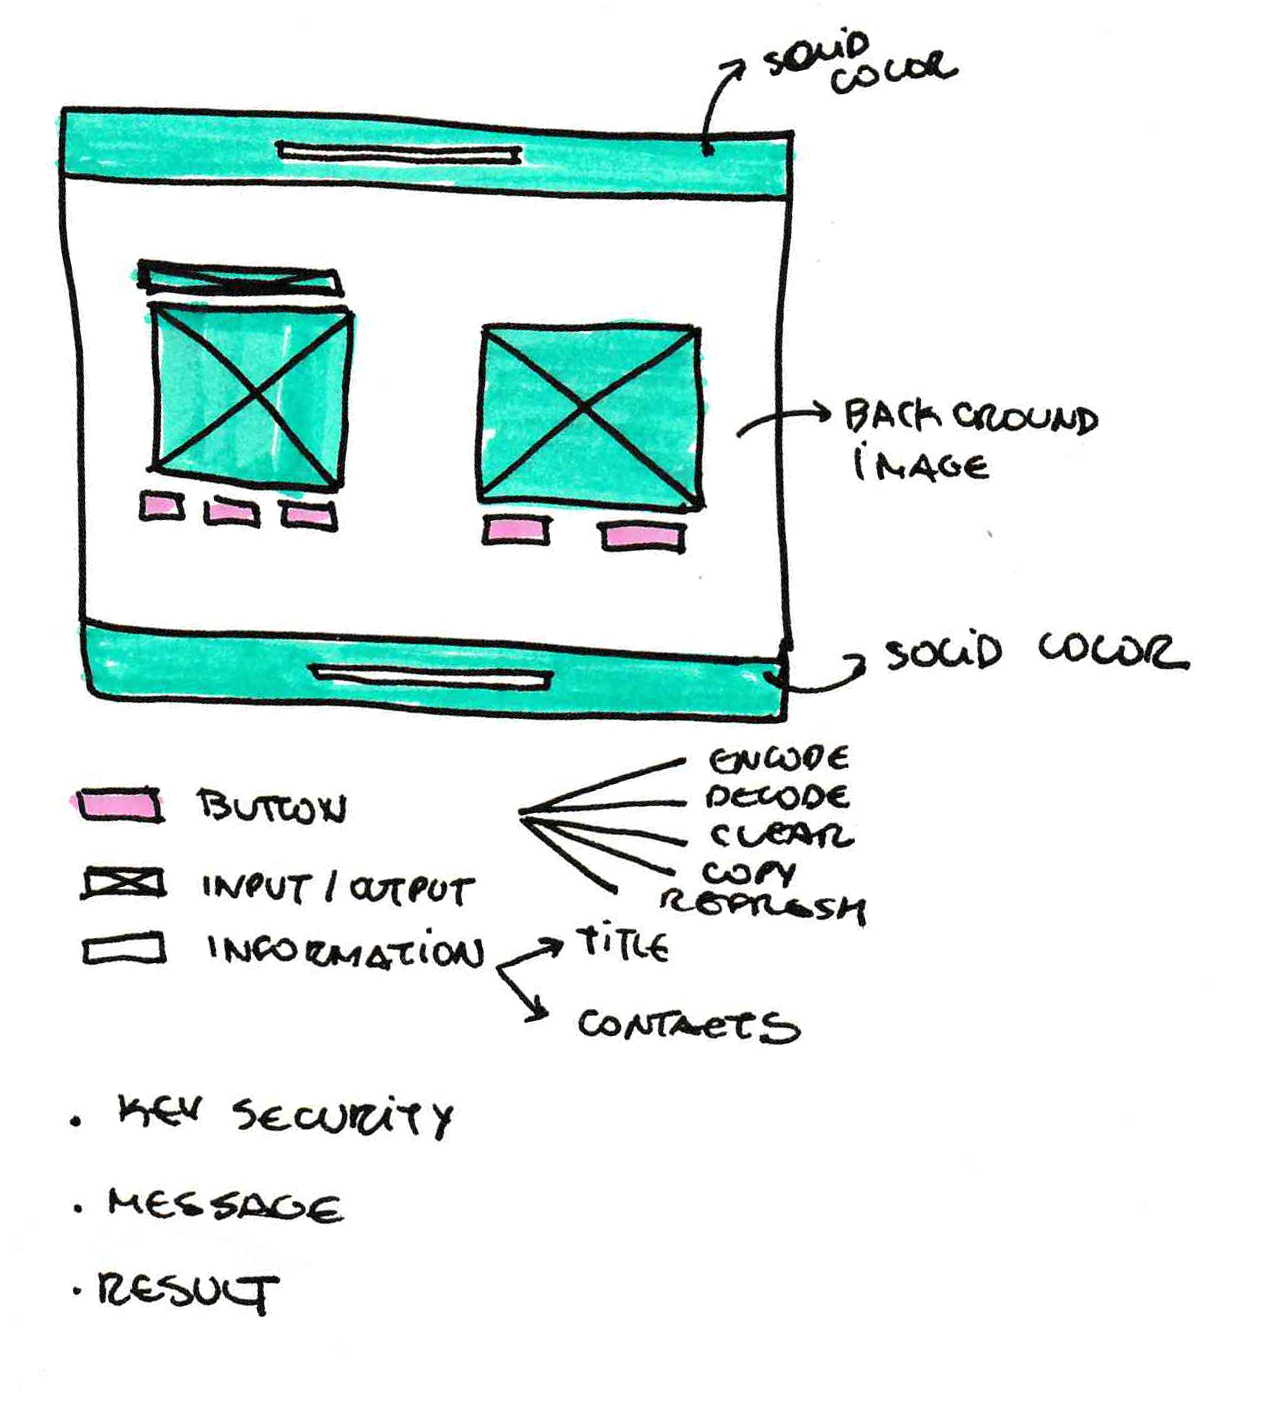 SOLID
COLOR
BACKGROUND
IMAGE
SOLID COLOR
BUTTON
ENCODE
DECODE
CLEAR
COPY
REFRESH
INPUT / OUTPUT
INFORMATION
TITLE
CONTACTS
. KEY SECURITY
. MESSAGE
. RESULT